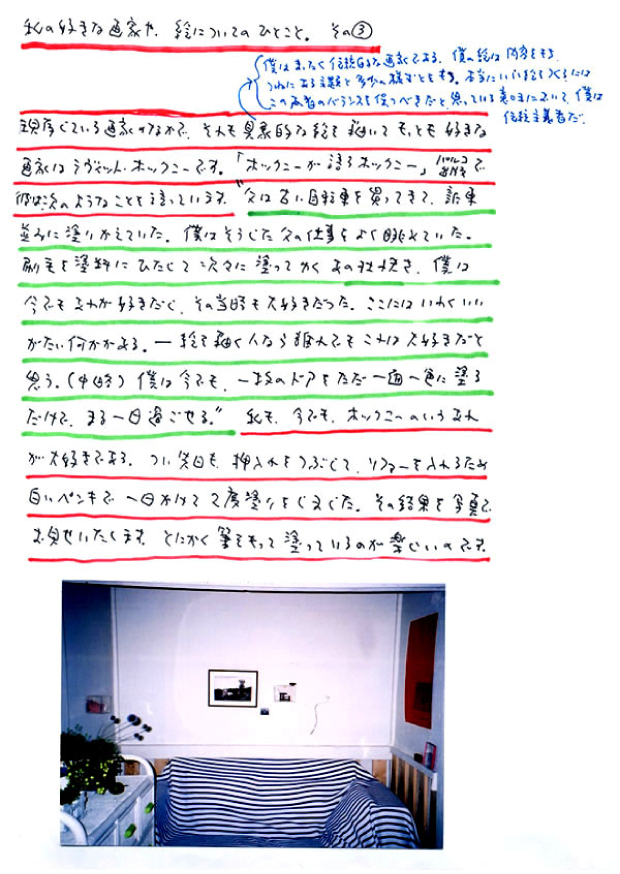 私の好きな画家や、絵についてのひとこと。その③
僕はまったく伝統的な画家である。僕の絵は内容をもち、
つねにある主題と多少の様式とをもつ。本当にいい絵をつくるには
この両者のバランスを保つべきだと思っている意味において、僕は
伝統主義者だ。
現存している画家のなかで、それも具象的な絵を描いてもっとも好きな
画家はデヴィット・ホックニーです。「ホックニーが語るホックニー」パルコ出版で
彼は次のようなことを言っています。"父は古い自転車を買ってきて、新車
並みに塗りかえていた。僕はそうした父の仕事をよく眺めていた。
刷毛を塗料にひたして次々に塗ってゆくあの仕事、僕は
今でもそれが好きだし、その当時も大好きだった。ここにはいわくいい
がたい何かがある。一絵を描く人なら誰れでもこれは大好きだと
思う。(中略)僕は今でも、一枚のドアをただ一面一色に塗る
だけで、まる一日過ごせる。" 私も、今でも、ホックニーのいうそれ
が大好きである。つい先日も、押入れをつぶして、ソファーを入れるため
白いペンキで一日かけて2度塗りをしました。その結果を写真で
お見せいたします。とにかく筆をもって塗っているのが楽しいのです。